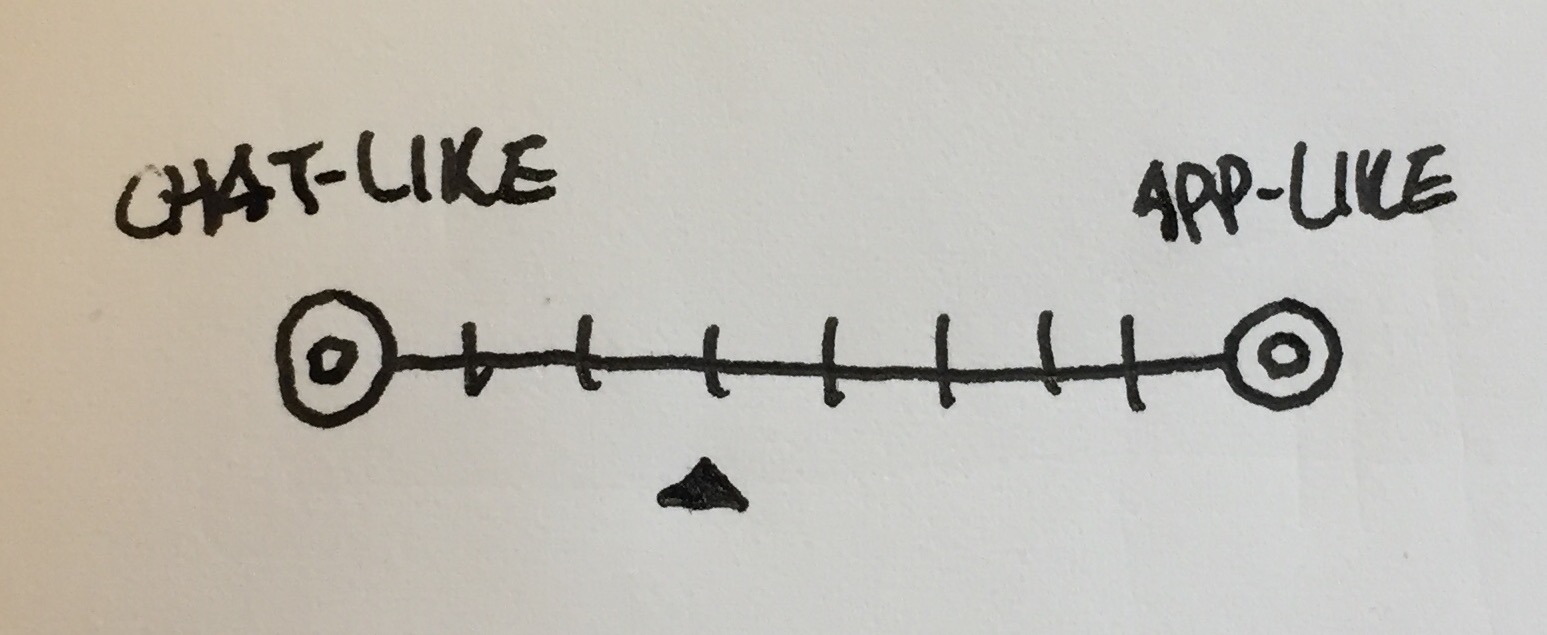 CHAT-LIKE
APP-LIKE